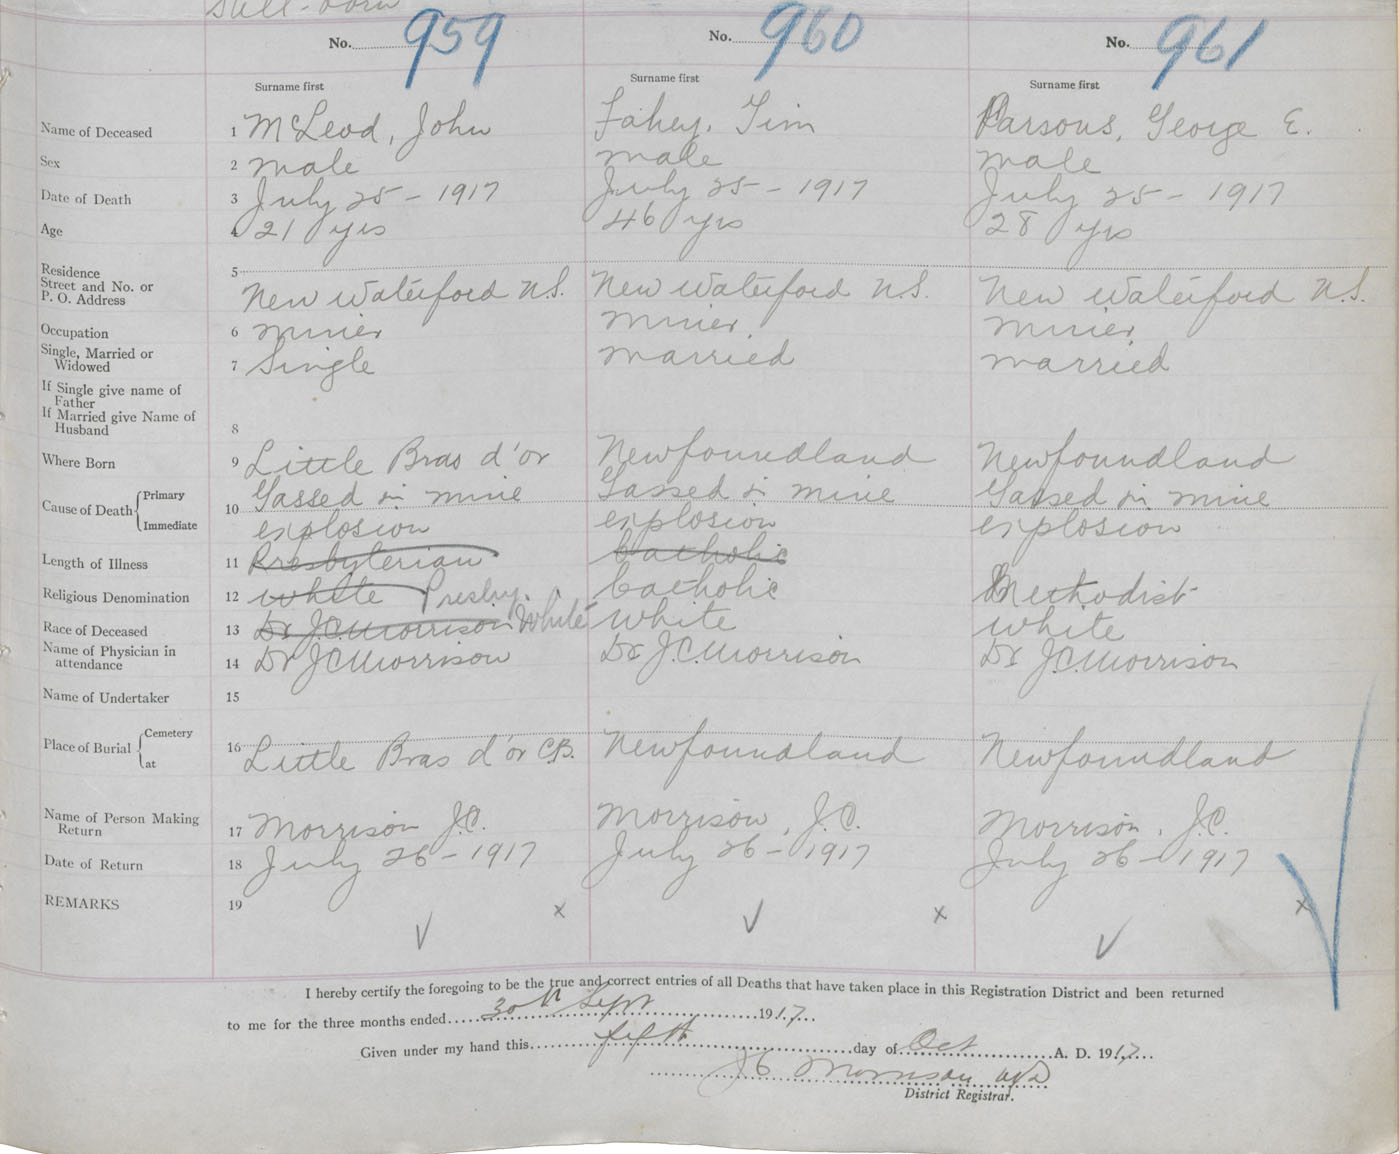 Still-born
No. 959 No. 960 No. 961
Surname first Surname first Surname first
Name of Deceased 1 McLeod, John Fahey, Tim Parsons, George E.
Sex 2 male male male
Date of Death 3 July 25 - 1917 July 25 - 1917 July 25 - 1917
Age 4 21 yrs 46 yrs 28 yrs
Residence 5
Street and No. or
P. O. Address New Waterford N.S. New Waterford N.S. New Waterford N.S.
Occupation 6 miner miner miner
Single, Married or
Widowed 7 Single married married
If Single give name of
Father
If Married give Name of
Husband 8
Where Born 9 Little Bras d'or Newfoundland Newfoundland
Cause of Death { Primary Gassed in mine Gassed in mine Gassed in mine
10
Immediate explosion explosion explosion
Length of Illness 11 Presbyterian Catholic
Religious Denomination 12 white Presby. Catholic Methodist
Race of Deceased 13 Dr J.C. Morrison White white white
Name of Physician in
attendance 14 Dr J C Morrison Dr J.C. Morrison Dr J.C. Morrison
Name of Undertaker 15
Place of Burial { Cemetery
at 16 Little Bras d'or C.B. Newfoundland Newfoundland
Name of Person Making
Return 17 Morrison J.C. Morrison, J.C. Morrison, J.C.
Date of Return 18 July 26 - 1917 July 26 - 1917 July 26 - 1917
REMARKS 19
x x x
✓ ✓ ✓
I hereby certify the foregoing to be the true and correct entries of all Deaths that have taken place in this Registration District and been returned
to me for the three months ended 30th Sept 1917
Given under my hand this fifth day of Oct A. D. 1917
J C Morrison MD
District Registrar.